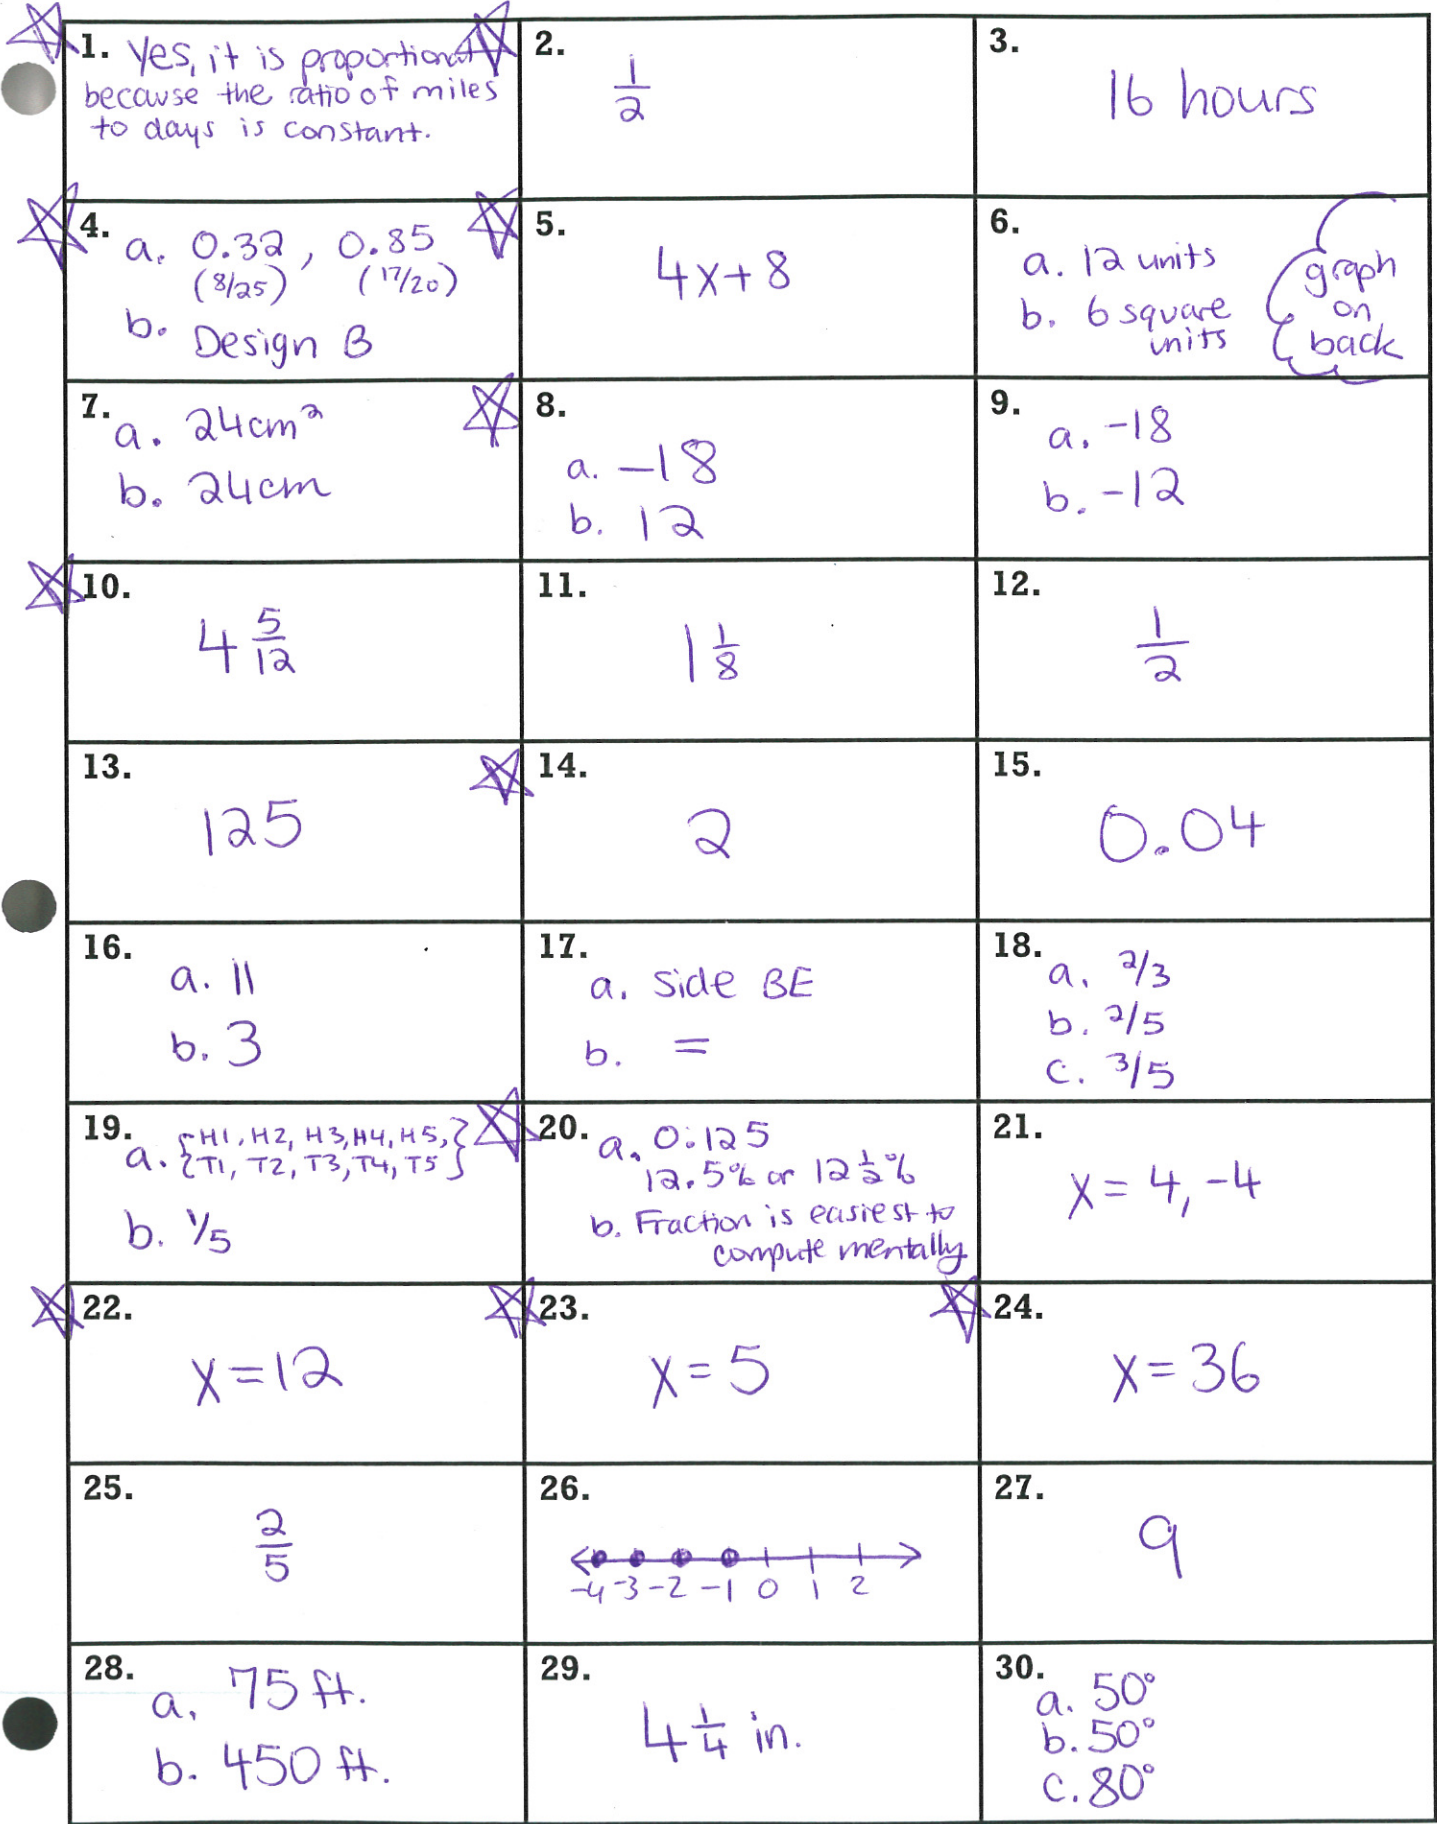 1. Yes, it is proportional
because the ratio of miles
to days is constant.
2.
1/2
3.
16 hours
4. a. 0.32, 0.85
(8/25) (17/20)
b. Design B
5.
4x+8
6.
a. 12 units
b. 6 square
units
graph
on
back
7. a. 24cm²
b. 24cm
8.
a. -18
b. 12
9.
a. -18
b. -12
10.
4 5/12
11.
1 1/8
12.
1/2
13.
125
14.
2
15.
0.04
16.
a. 11
b. 3
17.
a. Side BE
b. =
18. a. 2/3
b. 2/5
c. 3/5
19. a. {H1, H2, H3, H4, H5,}
{T1, T2, T3, T4, T5}
b. 1/5
20. a. 0.125
12.5% or 12 1/2%
b. Fraction is easiest to
compute mentally
21.
x = 4, -4
22.
x = 12
23.
x = 5
24.
x = 36
25.
2/5
26.
-4 -3 -2 -1 0 1 2
27.
9
28. a. 75 ft.
b. 450 ft.
29.
4 1/4 in.
30. a. 50°
b. 50°
c. 80°